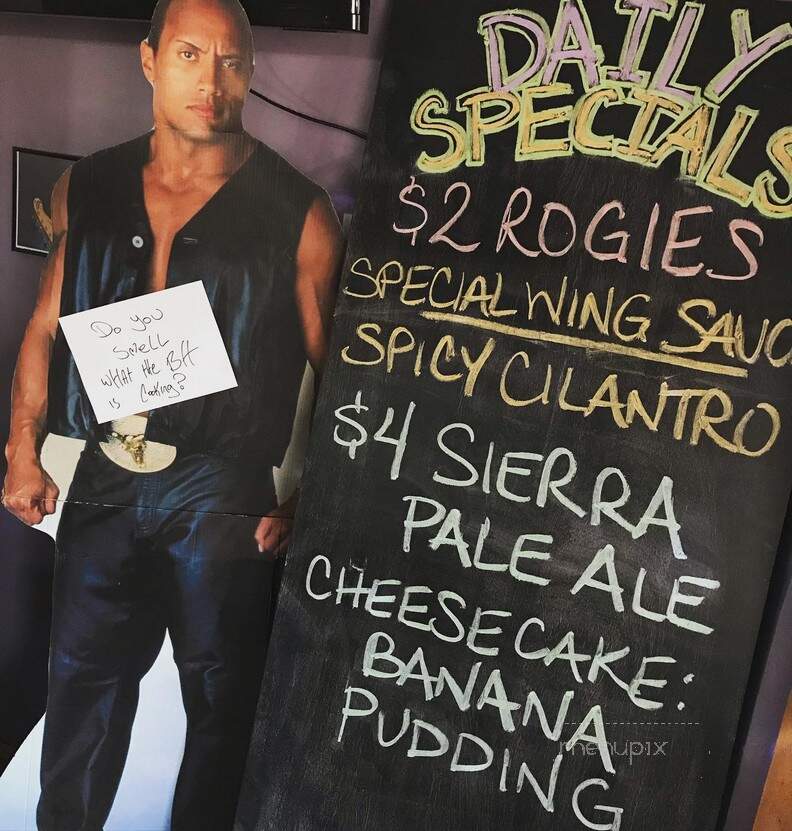 DAILY
SPECIALS
$2 ROGIES
SPECIAL WING SAUC
SPICY CILANTRO
$4 SIERRA
PALE ALE
CHEESECAKE:
BANANA
PUDDING
Do you
Smell
what the BH
is Cooking?
menupix